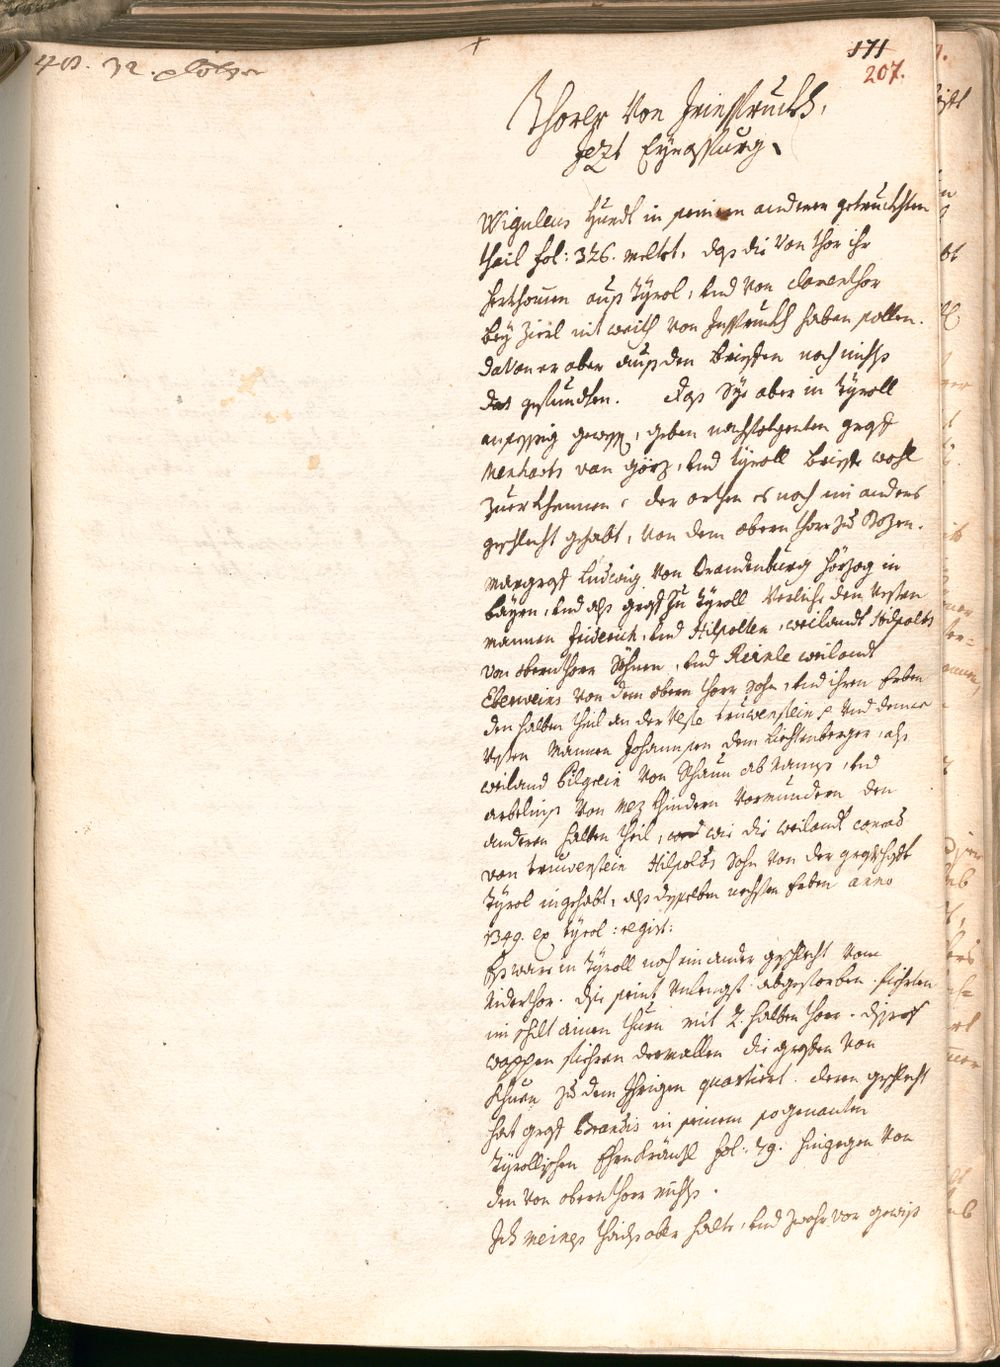 171
207.
Thorer Von Innspruckh,
Jezt Eyraspurg.
Wiguleus Hundt in seinem anderen getruckhten
theil fol: 326. meltet, dass die Von Thor ihr
herkhomen auss Tyrol, und Von dem Thor
bey Zierl nit weith von Inspruckh haben sollen.
daVon er aber auss den brieffen noch nichts
das gefundten. dass Sye aber in Tyroll
ansessig gewesst, geben nachfolgenten graf
Menharts van Görz, und Tyroll brieffe wohl
zuerkhennen, der orthen es noch ein anders
geschlecht gehabt, Von dem obern Thor zu Bozen.
Margraf Ludwig Von Brandenburg Hörzog in
bayrn, und alss graf zu Tyroll Verlihe den Vesten
mannen friderich, und Hilpolten, weilandt Hilpolts
von obernthor Söhnen, und Reinle weilandt
Eberweins Von dem obern Thor Sohn, und ihren Erben
den halben theil an der Veste truwenstein, Und denen
Vesten Mannen Johannsen dem Liechtenberger, als
weiland Bilgrein Von Schaun ab Namss, und
Von Mez Khindern Vormundern den
anderen halben theil, wie die weilandt conrad
von truwenstein Hilpolds Sohn Von der grafschaft
Tyrol ingehabt, alss desselben nechsten Erben anno
1349. ex Tyrol: regist:
Es ware in Tyroll noch ein ander geschlecht Vom
Niderthor. die seint Unlengst abgestorben. fiehrten
im schilt ainen thurn mit 2. halben Thor. dises
wappen fiehren dermallen die grafen Von
Khuen zu dem Ihrigen quartiert. deren geschlecht
hat graf Brandis in seinem so genanten
Tyrollischen Ehrnkränzl fol: 79. hingegen Von
den Von obernthor nichts.
Ich meines theils aber halte, und zwahr vor gewiss